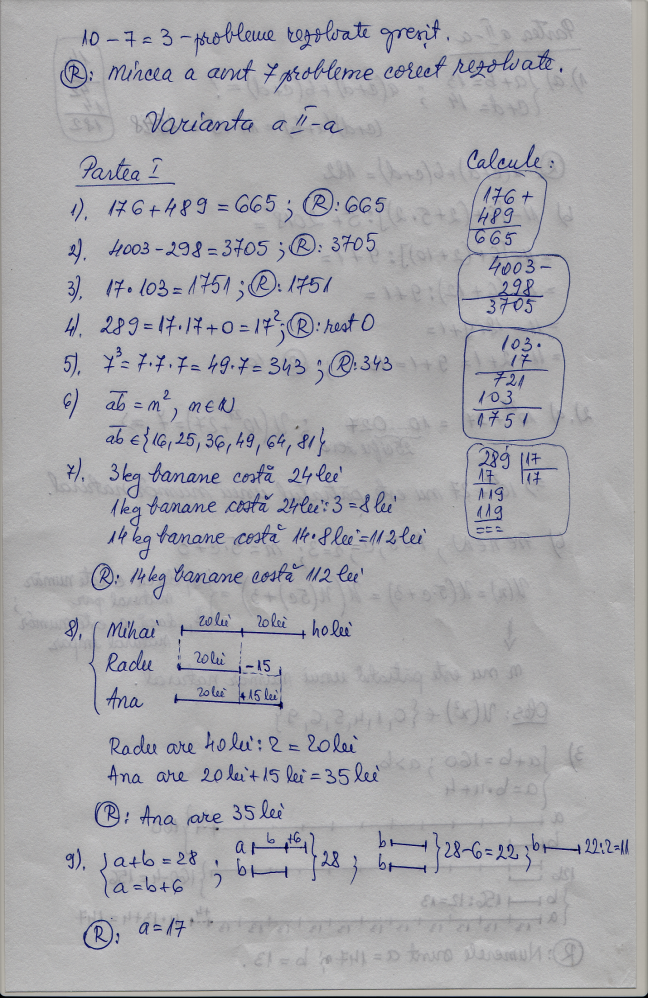 10 - 7 = 3 - probleme rezolvate greșit.
(R): Mircea a avut 7 probleme corect rezolvate.
Varianta a II-a
Partea I
Calcule:
1). 176 + 489 = 665 ; (R): 665
2). 4003 - 298 = 3705 ; (R): 3705
3). 17 · 103 = 1751 ; (R): 1751
4). 289 = 17 · 17 + 0 = 17² ; (R): rest 0
5). 7³ = 7 · 7 · 7 = 49 · 7 = 343 ; (R): 343
6) ab = n² , n ∈ N
ab ∈ {16, 25, 36, 49, 64, 81}
7). 3 kg banane costă 24 lei
1 kg banane costă 24 lei : 3 = 8 lei
14 kg banane costă 14 · 8 lei = 112 lei
(R): 14 kg banane costă 112 lei
176 +
489
665
4003 -
298
3705
103 ·
17
721
103
1751
289 | 17
17 | 17
119
119
===
8). Mihai 20 lei 20 lei 40 lei
Radu 20 lei - 15
Ana 20 lei + 15 lei
Radu are 40 lei : 2 = 20 lei
Ana are 20 lei + 15 lei = 35 lei
(R): Ana are 35 lei
9). { a + b = 28 ; a b +6 } 28 ; b } 28 - 6 = 22 ; b 22 : 2 = 11
a = b + 6 b b
(R): a = 17